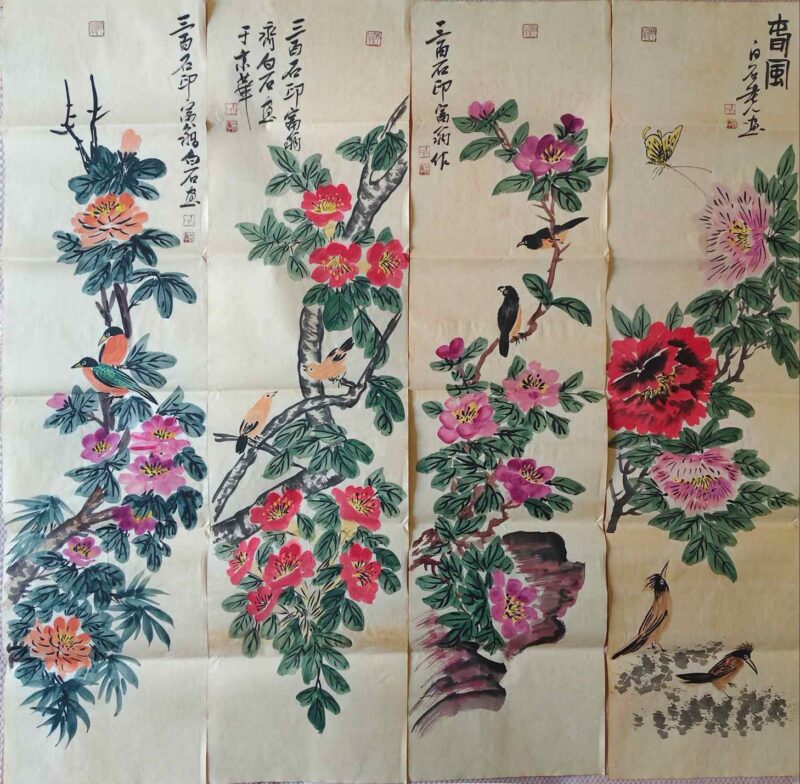 春風
白石老人畫
三百石印富翁作
三百石印富翁
齊白石畫
于京華
三百石印富翁白石畫